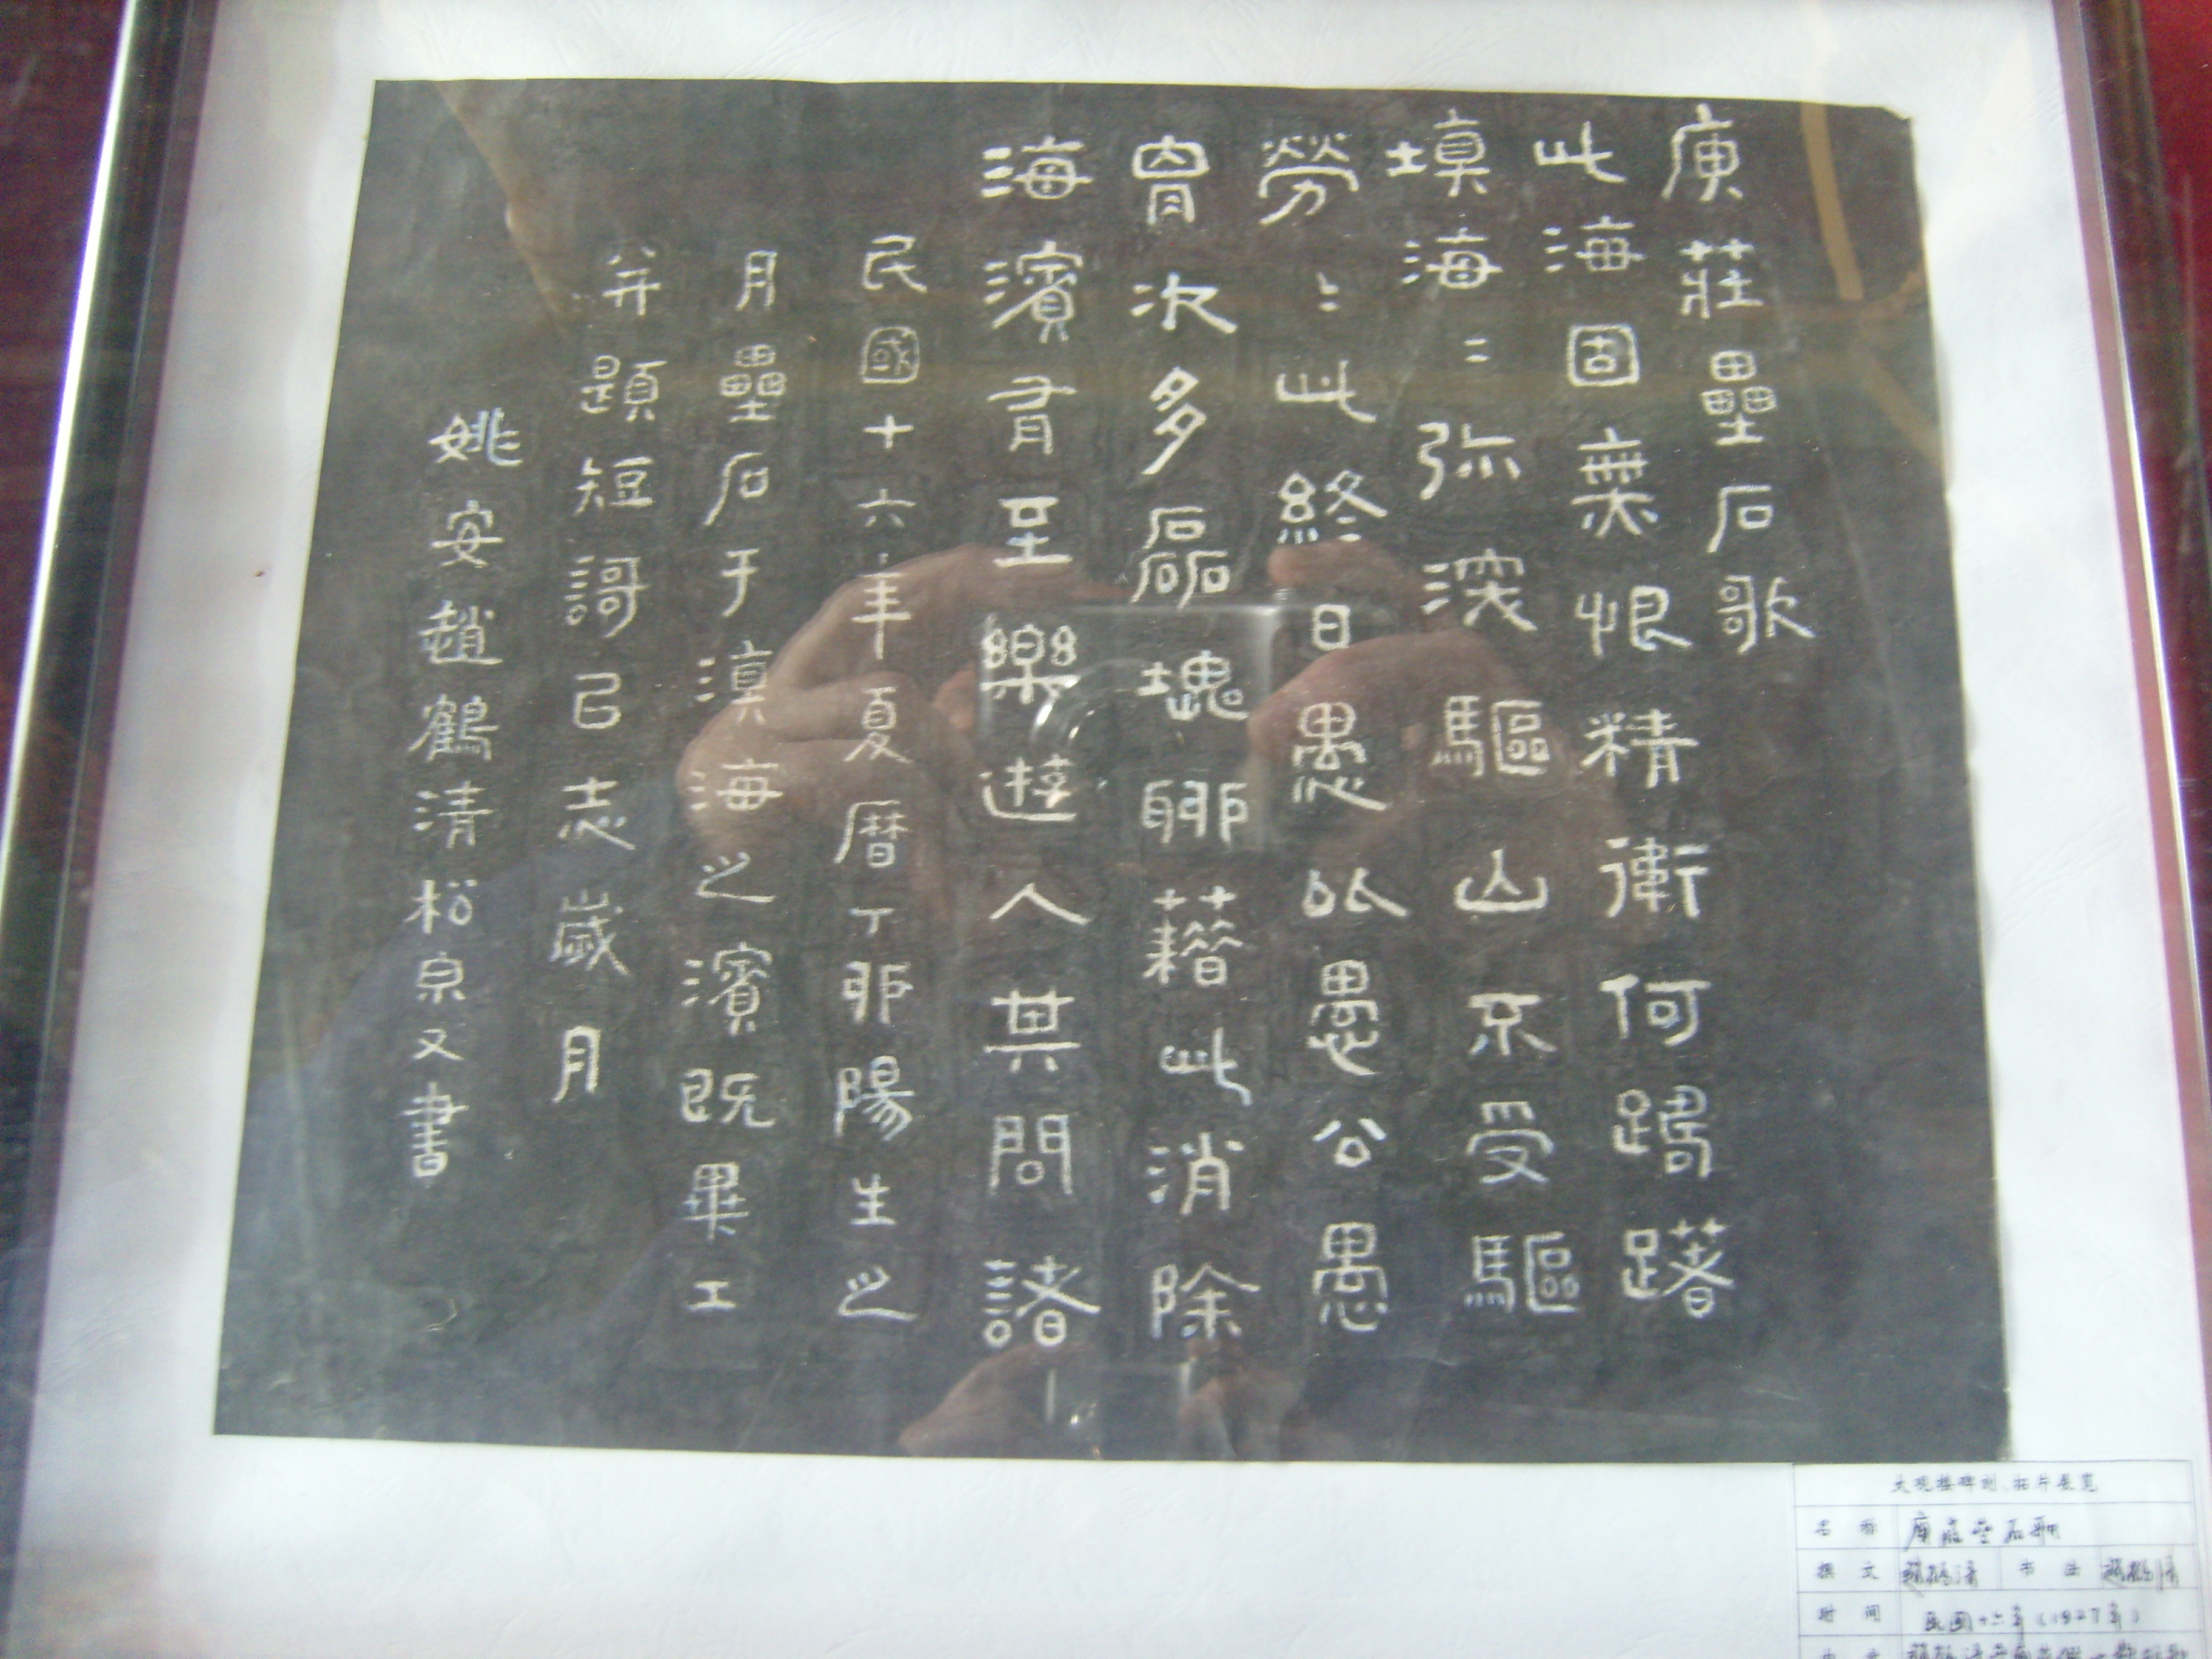 庾莊壘石歌
此海固無恨精衛何躊躇
塡海〻弥深驅山不受驅
勞〻此終日愚以愚公愚
胷次多磊塊聊藉此消除
海濱有至樂遊人其問諸
民國十六年夏曆丁卯陽生之
月壘石于滇海之濱既畢工
并題短謌㠯志歲月
姚安趙鶴清松泉又書
大观楼碑刻、拓片展览
名称 庾庄垒石歌
撰文 赵鹤清 书法 赵鹤清
时间 民国十六年（1927年）